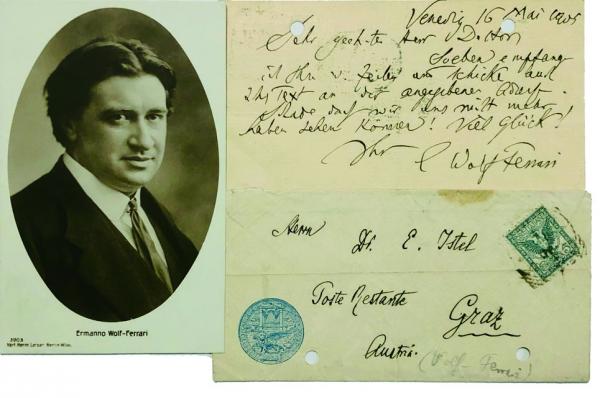 Ermanno Wolf-Ferrari
Verl. Herm. Leiser, Berlin-Wilm.
Venedig 16 Mai 1905
Sehr geehrter Herr Doctor
Soeben empfang
ich Ihre Zeilen und schicke auch
Ihr Text an die angegebene Adresse.
Schade dass wir uns nicht mehr
haben sehen können! Viel Glück!
Ihr E Wolf Ferrari
Herrn
Dr. E. Istel
Poste Restante
Graz
Austria.
(Wolf-Ferrari)